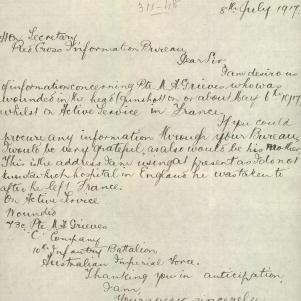 311-48
8th July 1917.
Hon Secretary
Red Cross Information Bureau
Dear Sir,
I am desirous
of information concerning Pte M. A. Grieves, who was
wounded in the head (gunshot) on or about May 6th, 1917
whilst on Active Service in France.
If you could
procure any information through your Bureau
I would be very grateful, as also would be his mother.
This is the address I am using at present as I do not
know which hospital in England he was taken to
after he left France.
On Active Service
Wounded
Pte M. A. Grieves
"C" Company
10th Infantry Battalion
Australian Imperial Force.
Thanking you in anticipation
I am
Yours very sincerely